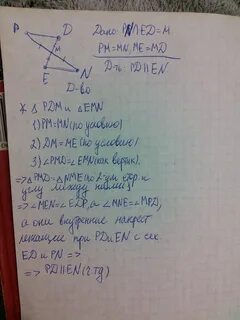 P D
Дано: PN∩ED=M
M
PM=MN, ME=MD
E N
Д-ть: PD||EN
Д-во
* △ PDM и △EMN
1) PM=MN(по условию)
2) DM=ME(по условию)
3) ∠PMD=∠EMN(как вертик).
=>△PMD=△NME(по 2-ум стр. и
углу между ними) =>
=> ∠MEN=∠EDP, а ∠MNE=∠MPD,
а они внутренние накрест
лежащие при PD и EN с сек.
ED и PN =>
=> PD||EN(2 ту)